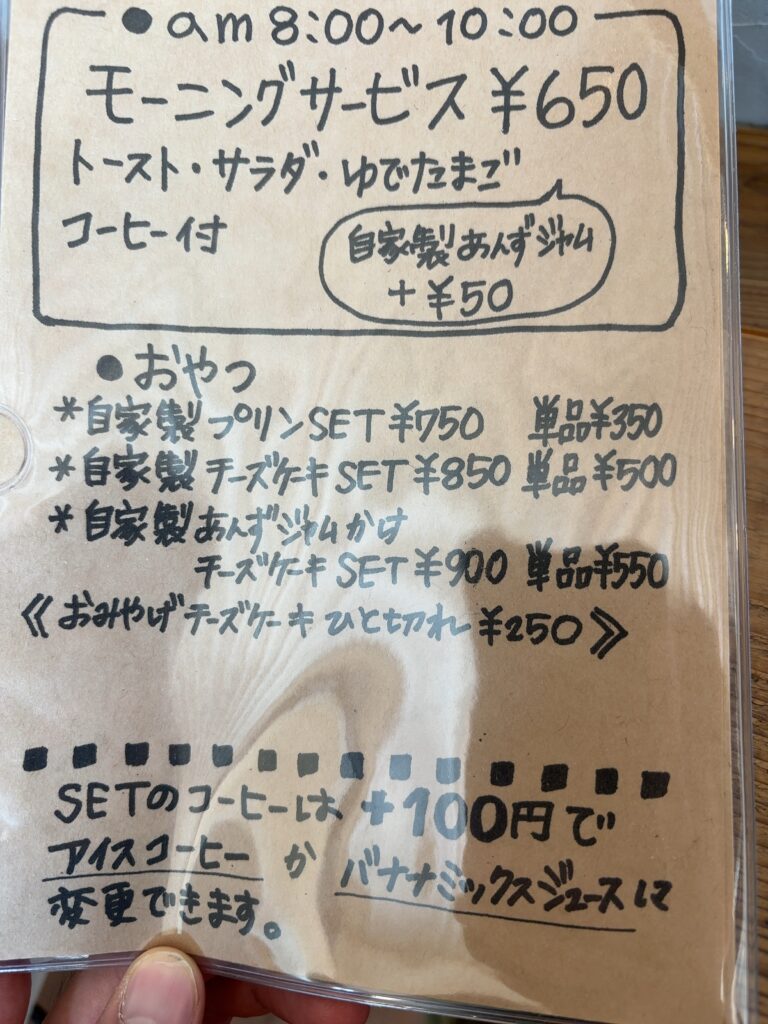 ●am 8:00～10:00
モーニングサービス ¥650
トースト・サラダ・ゆでたまご
コーヒー付
自家製あんずジャム
+¥50
●おやつ
*自家製プリンSET ¥750 単品¥350
*自家製チーズケーキSET ¥850 単品¥500
*自家製あんずジャムかけ
チーズケーキSET ¥900 単品¥550
《おみやげチーズケーキ ひと切れ ¥250》
SETのコーヒーは +100円で
アイスコーヒー か バナナミックスジュースに
変更できます。